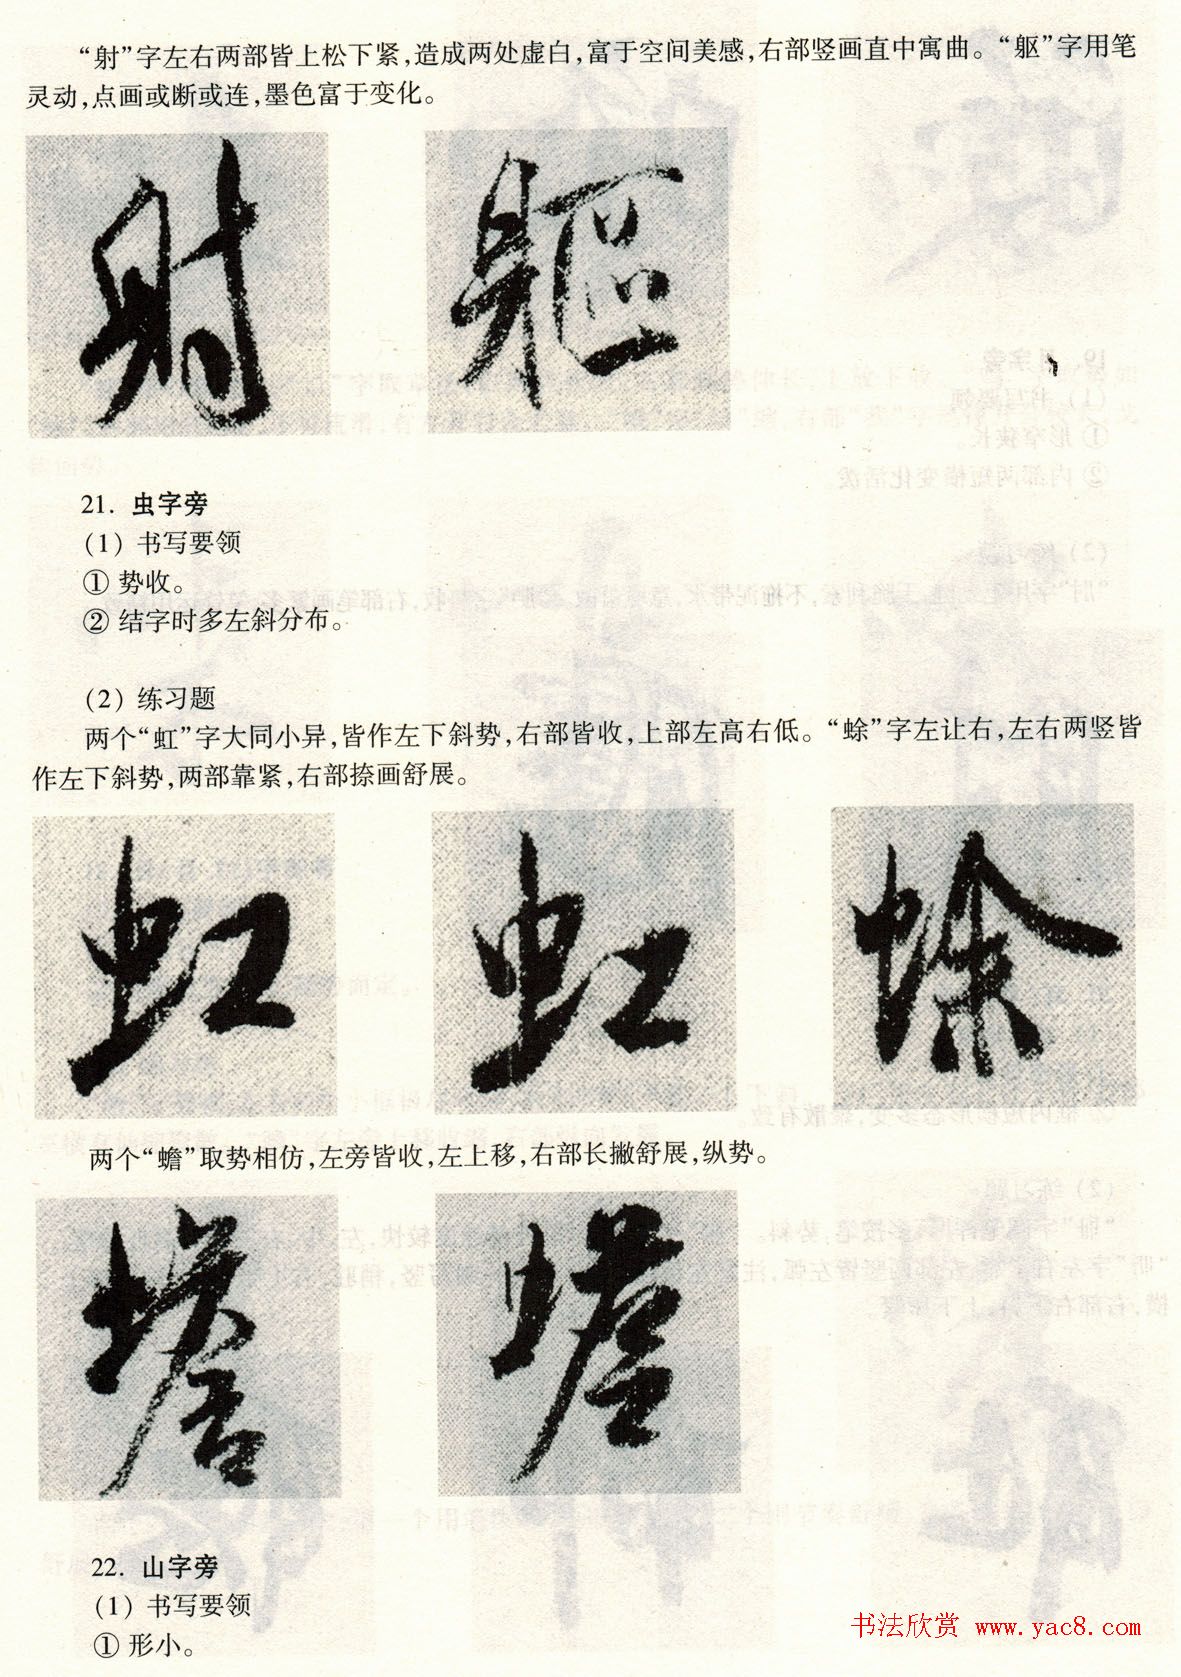 “射”字左右两部皆上松下紧,造成两处虚白,富于空间美感,右部竖画直中寓曲。“躯”字用笔
灵动,点画或断或连,墨色富于变化。
射 軀
21. 虫字旁
(1) 书写要领
① 势收。
② 结字时多左斜分布。
(2) 练习题
两个“虹”字大同小异,皆作左下斜势,右部皆收,上部左高右低。“蜍”字左让右,左右两竖皆
作左下斜势,两部靠紧,右部捺画舒展。
虹 虹 蜍
两个“蟾”取势相仿,左旁皆收,左上移,右部长撇舒展,纵势。
蟾 蟾
22. 山字旁
(1) 书写要领
① 形小。
书法欣赏 www.yac8.com